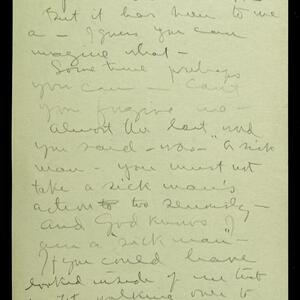 But it has been to me
a — I guess you can
imagine what —
Sometime perhaps
you can — Can't
you forgive me —
almost the last word
you said — was — a sick
man — you must not
take a sick man's
action too seriously —
and God knows I
am a "sick man" —
If you could have
looked inside of me that
walking over to